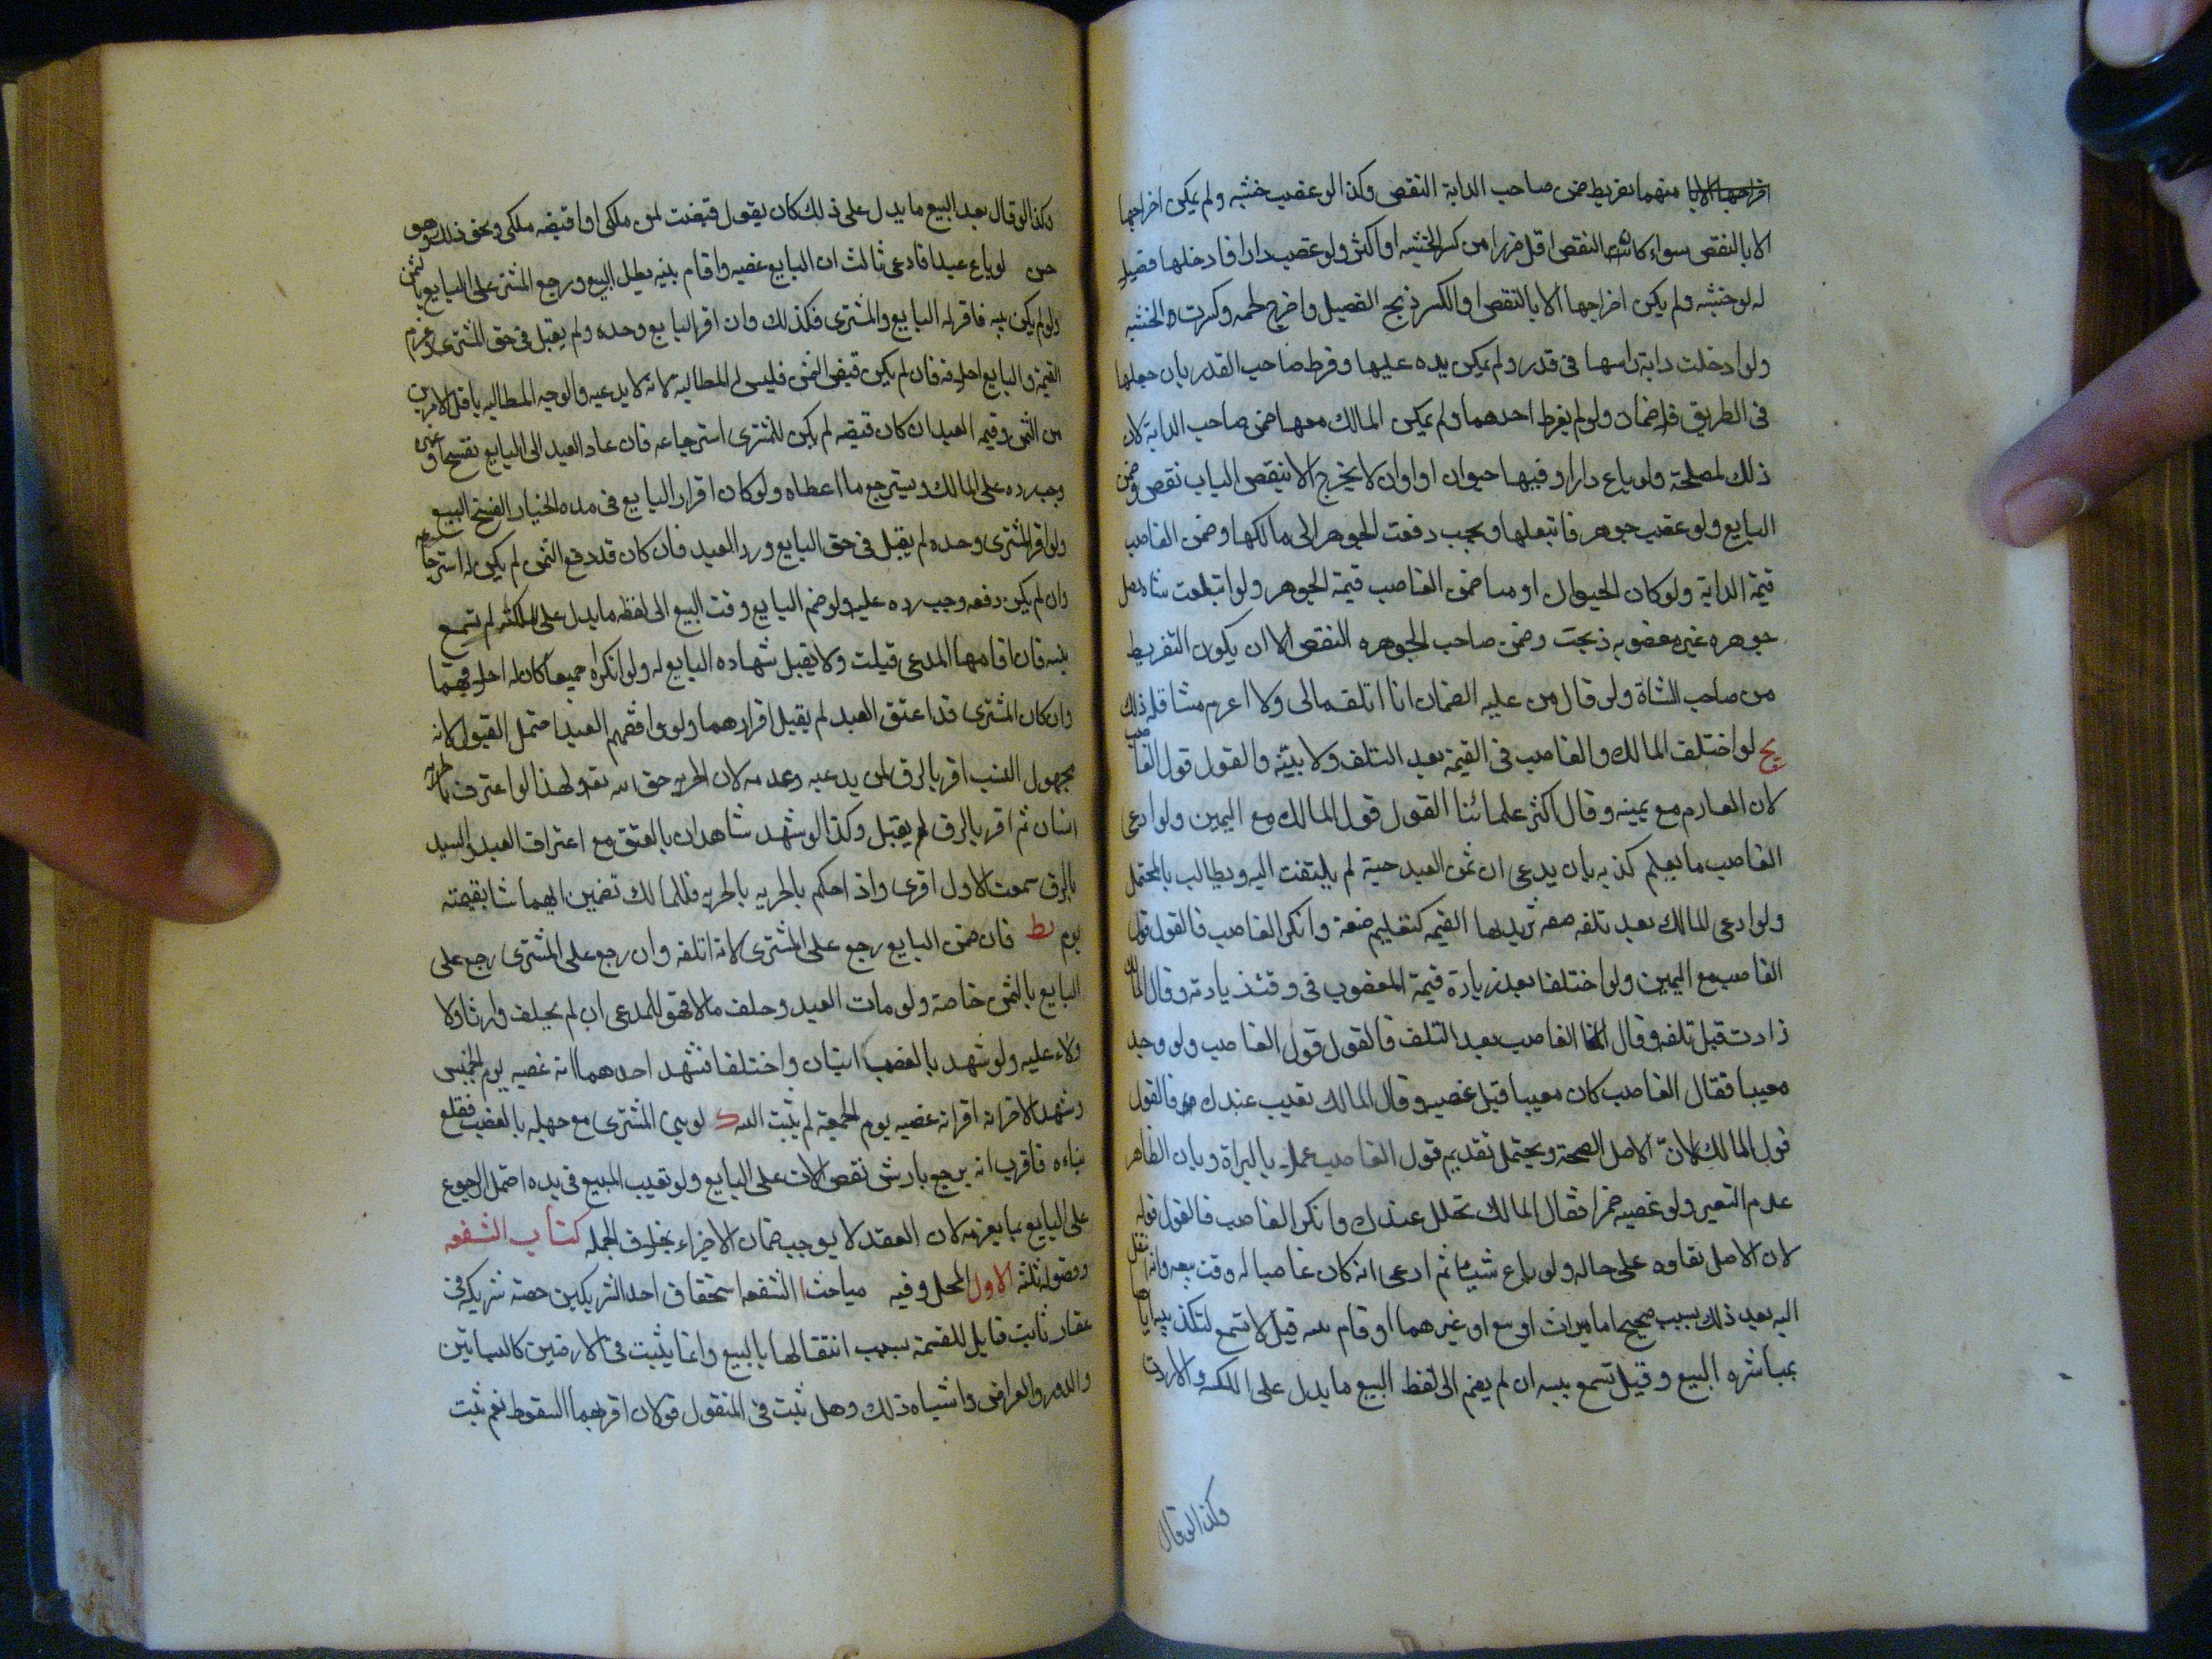 منهما تفريط ضمن صاحب الدابة النقص وكذا لو غصب خشبه ولم يمكن اخراجها
الا بالنقص سواء كان النقص اقل ضررا من كسر الخشبه او اكثر ولو غصب دارا فادخلها فصيلا
له او خشبه ولم يكن اخراجها الا بالنقص او الكسر ذبح الفصيل واخرج لحمه وكسرت الخشبه
ولو ادخلت دابة راسها فى قدر ولم يمكن يده عليها وفرط صاحب القدر بان جعلها
فى الطريق فلا ضمان ولو لم يفرط احدهما ولم يمكن المالك معها ضمن صاحب الدابة لان
ذلك لمصلحته ولو باع دارا وفيها حيوان او اوان لا يخرج الا بنقص الباب نقص وضمن
البايع ولو غصب جوهر فابتعلها وبجب دفعت الجوهر الى مالكها وضمن الغاصب
قيمة الدابة ولو كان الحيوان اوميا ضمن الغاصب قيمة الجوهر ولو ابتلعت شاة رجل
جوهره غير مغضوبه ذبحت وضمن صاحب الجوهره النقص الا ان يكون التفريط
من صاحب الشاة ولو قال من عليه الضمان انا اتلف مالى ولا اغرم شيئا فله ذلك
يح لو اختلف المالك والغاصب فى القيمة بعد التلف ولا بينه والقول قول الغاصب
لان الغارم مع يمينه وقال اكثر علمائنا القول قول المالك مع اليمين ولو ادعى
الغاصب ما يعلم كذبه بان يدعى ان ثمن العبد حبة لم يلتفت اليه ويطالب بالمحتمل
ولو ادعى المالك بعد تلفه صفه تزيد بها القيمه كتعليم صنعة وانكر الغاصب فالقول قول
الغاصب مع اليمين ولو اختلفا بعد زيادة قيمة المغصوب فى وقت زيادته وقال المالك
زادت قبل تلفه وقال الغاصب بعد التلف فالقول قول الغاصب ولو وجد
معيبا فقال الغاصب كان معيبا قبل غصبه وقال المالك تعيب عندك فالقول
قول المالك لانّ الاصل الصحة ويحتمل تقديم قول الغاصب عملا بالبراة وبان الظاهر
عدم التغير ولو غصبه خمرا فقال المالك تخلل عندك وانكر الغاصب فالقول قوله
لان الاصل بقاوه على حاله ولو باع شيئا ثم ادعى انه كان غاصبا له وقت بيعه وانه انتقل
اليه بعد ذلك بسبب صحيح اما ميراث او بيع او غيرهما اوقام بينه قيل لا تسمع لتكذيبه اياها
بمباشره البيع وقيل تسمع بينه ان لم يضم الى لفظ البيع ما يدل على الملكيه والا ردت
وكذا لو قال
وكذا لو قال بعد البيع ما يدل على ذلك كان يقول قبضت ثمن ملكى او اقبضه ملكى ونحو ذلك وهو
حق لو باع عبدا فادعى ثالث ان البايع غصبه واقام بينه بطل البيع ورجع المشترى على البايع بالثمن
ولو لم يكن بينه فاقر له البايع والمشترى فكذلك وان اقر البايع وحده ولم يقبل فى حق المشترى وغرم
القيمة وللبايع احلافه فان لم يكن قبض الثمن فليس له المطالبه لانه لا يدعيه والوجه المطالبه باقل الامرين
من الثمن وقيمه العبد ان كان قبضه لم يكن للمشترى استرجاعه فان عاد العبد الى البايع بفسخ او غيره
وجب رده على المالك ويسترجع ما اعطاه ولو كان اقرار البايع فى مده الخيار انفسخ البيع
ولو اقر المشترى وحده لم يقبل فى حق البايع ورد العبد فان كان قد دفع الثمن لم يكن له استرجاعه
وان لم يكن دفعه وجب رده عليه ولو ضم البايع وقت البيع الى لفظه ما يدل على الملكيه لم تسمع
بينه فان اقامها المدعى قبلت ولا يقبل شهاده البايع له ولو انكراه جميعا كان له احلافهما
وان كان المشترى قد اعتق العبد لم يقبل اقرارهما ولو وافقهم العبد احتمل القبول لانه
مجهول النسب اقر بالرق لمن يدعيه وعدمه لان الحريه حق الله تعالى ولهذا لو اعترف بالحرية
انسان ثم اقر بالرق لم يقبل وكذا لو شهد شاهدان بالعتق مع اعتراف العبد والسيد
بالرق سمعت الاول اقوى واذا حكم بالحريه بالحريه فللمالك تضمين ايهما شا بقيمته
يوم بط فان ضمن البايع رجع على المشترى لانه اتلفه وان رجع على المشترى رجع على
البايع بالثمن خاصة ولو مات العبد وحلف مالا فهو للمدعى ان لم يخلف وارثا ولا
ولاء عليه ولو شهد بالغصب اثنان واختلفا فشهد احدهما انه غصبه يوم الخميس
وشهد الاخر انه اقر انه غصبه يوم الجمعة لم يثبت البينه ك لو بنى المشترى مع جهله بالغصب فقلع
بناءه فاقرب انه يرجع بارش نقص الالات على البايع ولو تعيب المبيع فى يده احتمل الرجوع
على البايع بما يغرمه لان العقد لا يوجب ضمان الاجزاء بخلاف الجمله كتاب الشفعه
وفصوله ثلثه الاول المحل وفيه مباحث ا الشفعه استحقاق احد الشريكين حصة شريكه فى
عقار ثابت قابل للقسمة بسبب انتقالها بالبيع وانما يثبت فى الارضين كالبساتين
والدور والعراض واشباه ذلك وهل تثبت فى المنقول قولان اقربهما السقوط نعم تثبت